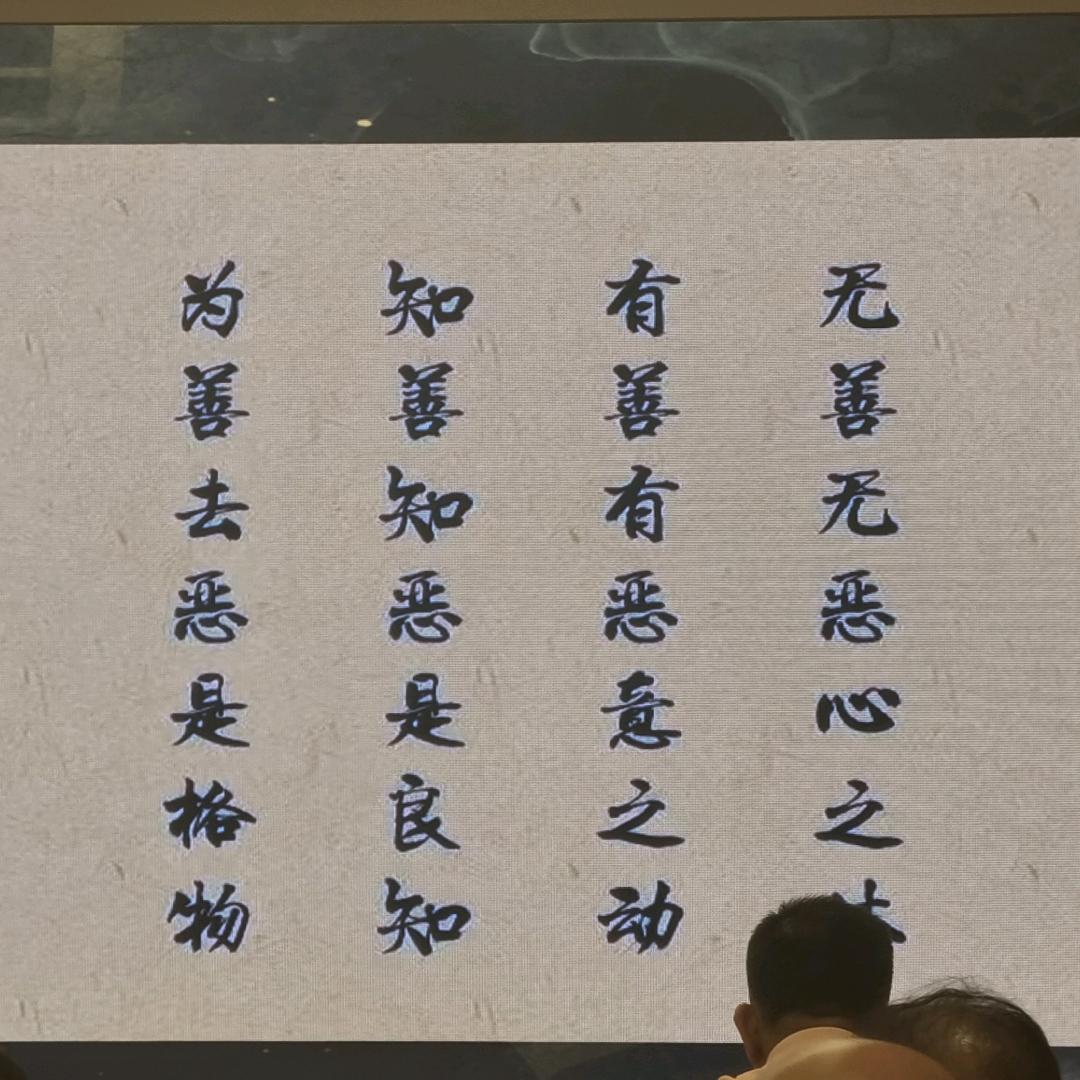 无善无恶心之
有善有恶意之动
知善知恶是良知
为善去恶是格物